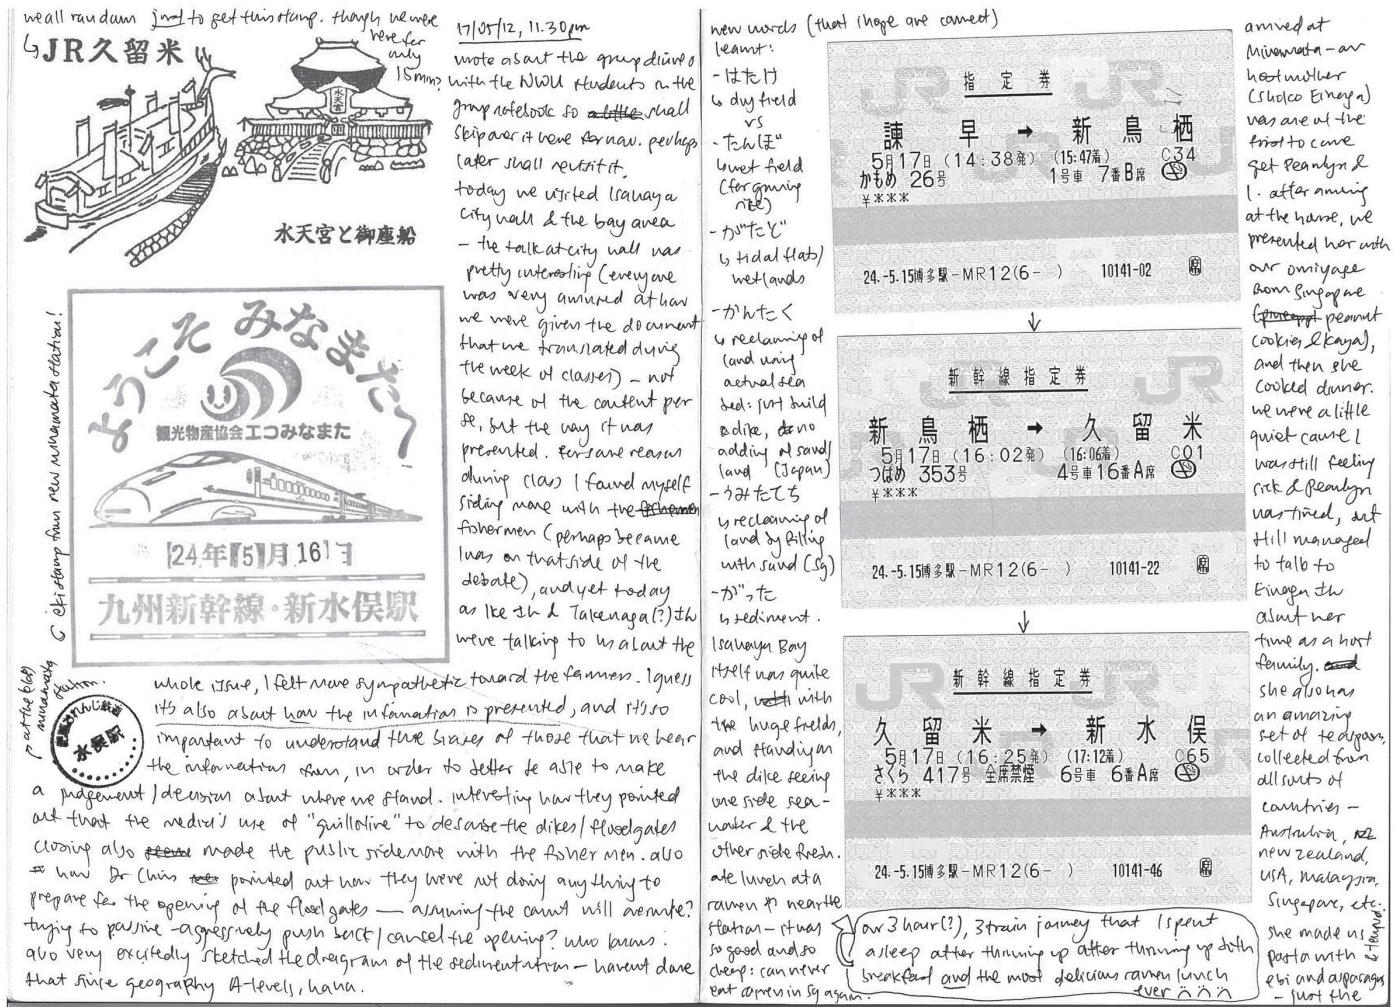 we all ran dam just to get this stamp. though we were
here for
only
15mins?
JR久留米
水天宮
水天宮と御座船
eki stamp from new minamata station!
ようこそ みなまたへ
観光物産協会エコみなまた
24年 5月 16日
九州新幹線・新水俣駅
at the (old)
minamata
station.
肥薩おれんじ鉄道
水俣駅
17/05/12, 11.30pm
wrote about the group dinner
with the NWU students in the
group notebook so a little shall
skip over it here for now. perhaps
later shall revisit it.
today we visited Isahaya
City hall & the bay area
– the talk at city hall was
pretty interesting (everyone
was very amused at how
we were given the document
that we translated during
the week of classes) – not
because of the content per
se, but the way it was
presented. for some reason
during class I found myself
siding more with the fishermen
fishermen (perhaps because
I was on that side of the
debate), and yet today
as Ike SH & Takenaga(?) SH
were talking to us about the
whole issue, I felt more sympathetic toward the farmers. I guess
it's also about how the information is presented, and it's so
important to understand the biases of those that we hear
the information from, in order to better be able to make
a judgement/decision about where we stand. interesting how they pointed
out that the media's use of "guillotine" to describe the dikes/floodgates
closing also made the public side more with the fishermen. also
how Dr Chins pointed out how they were not doing anything to
prepare for the opening of the floodgates — assuming the court will overrule?
trying to passive-aggressively push back/cancel the opening? who knows.
also very excitedly sketched the diagram of the sedimentation – havent done
that since geography A-levels, haha.
new words (that i hope are correct)
learnt:
- はたけ
↳ dry field
vs
- たんぼ
↳ wet field
(for growing
rice)
- がたど
↳ tidal flats/
wetlands
- かんたく
↳ reclaiming of
land using
actual sea
bed: just build
a dike, no
adding of sand/
land (Japan)
- うみたてち
↳ reclaiming of
land by filling
with sand (sg)
- がった
↳ sediment.
Isahaya Bay
itself was quite
cool, with
the huge fields,
and standing on
the dike seeing
one side sea-
water & the
other side fresh.
ate lunch at a
ramen near the
station – it was
so good and so
cheap: can never
eat ramen in sg again.
指定券
諫早 → 新鳥栖
5月17日 (14:38発) (15:47着) C34
かもめ 26号 1号車 7番B席
¥***
24.-5.15博多駅-MR12(6- ) 10141-02
新幹線指定券
新鳥栖 → 久留米
5月17日 (16:02発) (16:06着) C01
つばめ 353号 4号車16番A席
¥***
24.-5.15博多駅-MR12(6- ) 10141-22
新幹線指定券
久留米 → 新水俣
5月17日 (16:25発) (17:12着) C65
さくら 417号 全席禁煙 6号車 6番A席
¥***
24.-5.15博多駅-MR12(6- ) 10141-46
our 3 hour(?), 3 train journey that I spent
asleep after throwing up after throwing up both
breakfast and the most delicious ramen lunch
ever
arrived at
Minamata – our
host mother
(Shoko Einaga)
was one of the
first to come
get Pearlyn &
I. after arriving
at the house, we
presented her with
our omiyage
from Singapore
(peanut
cookies & kaya),
and then she
cooked dinner.
we were a little
quiet cause I
was still feeling
sick & Pearlyn
was tired, but
still managed
to talk to
Einaga SH
about her
time as a host
family.
she also has
an amazing
set of teaspoons,
collected from
all sorts of
countries –
Australia, NZ
new zealand,
USA, Malaysia,
Singapore, etc.
she made us
pasta with
ebi and asparagus
& tempura!
– just the